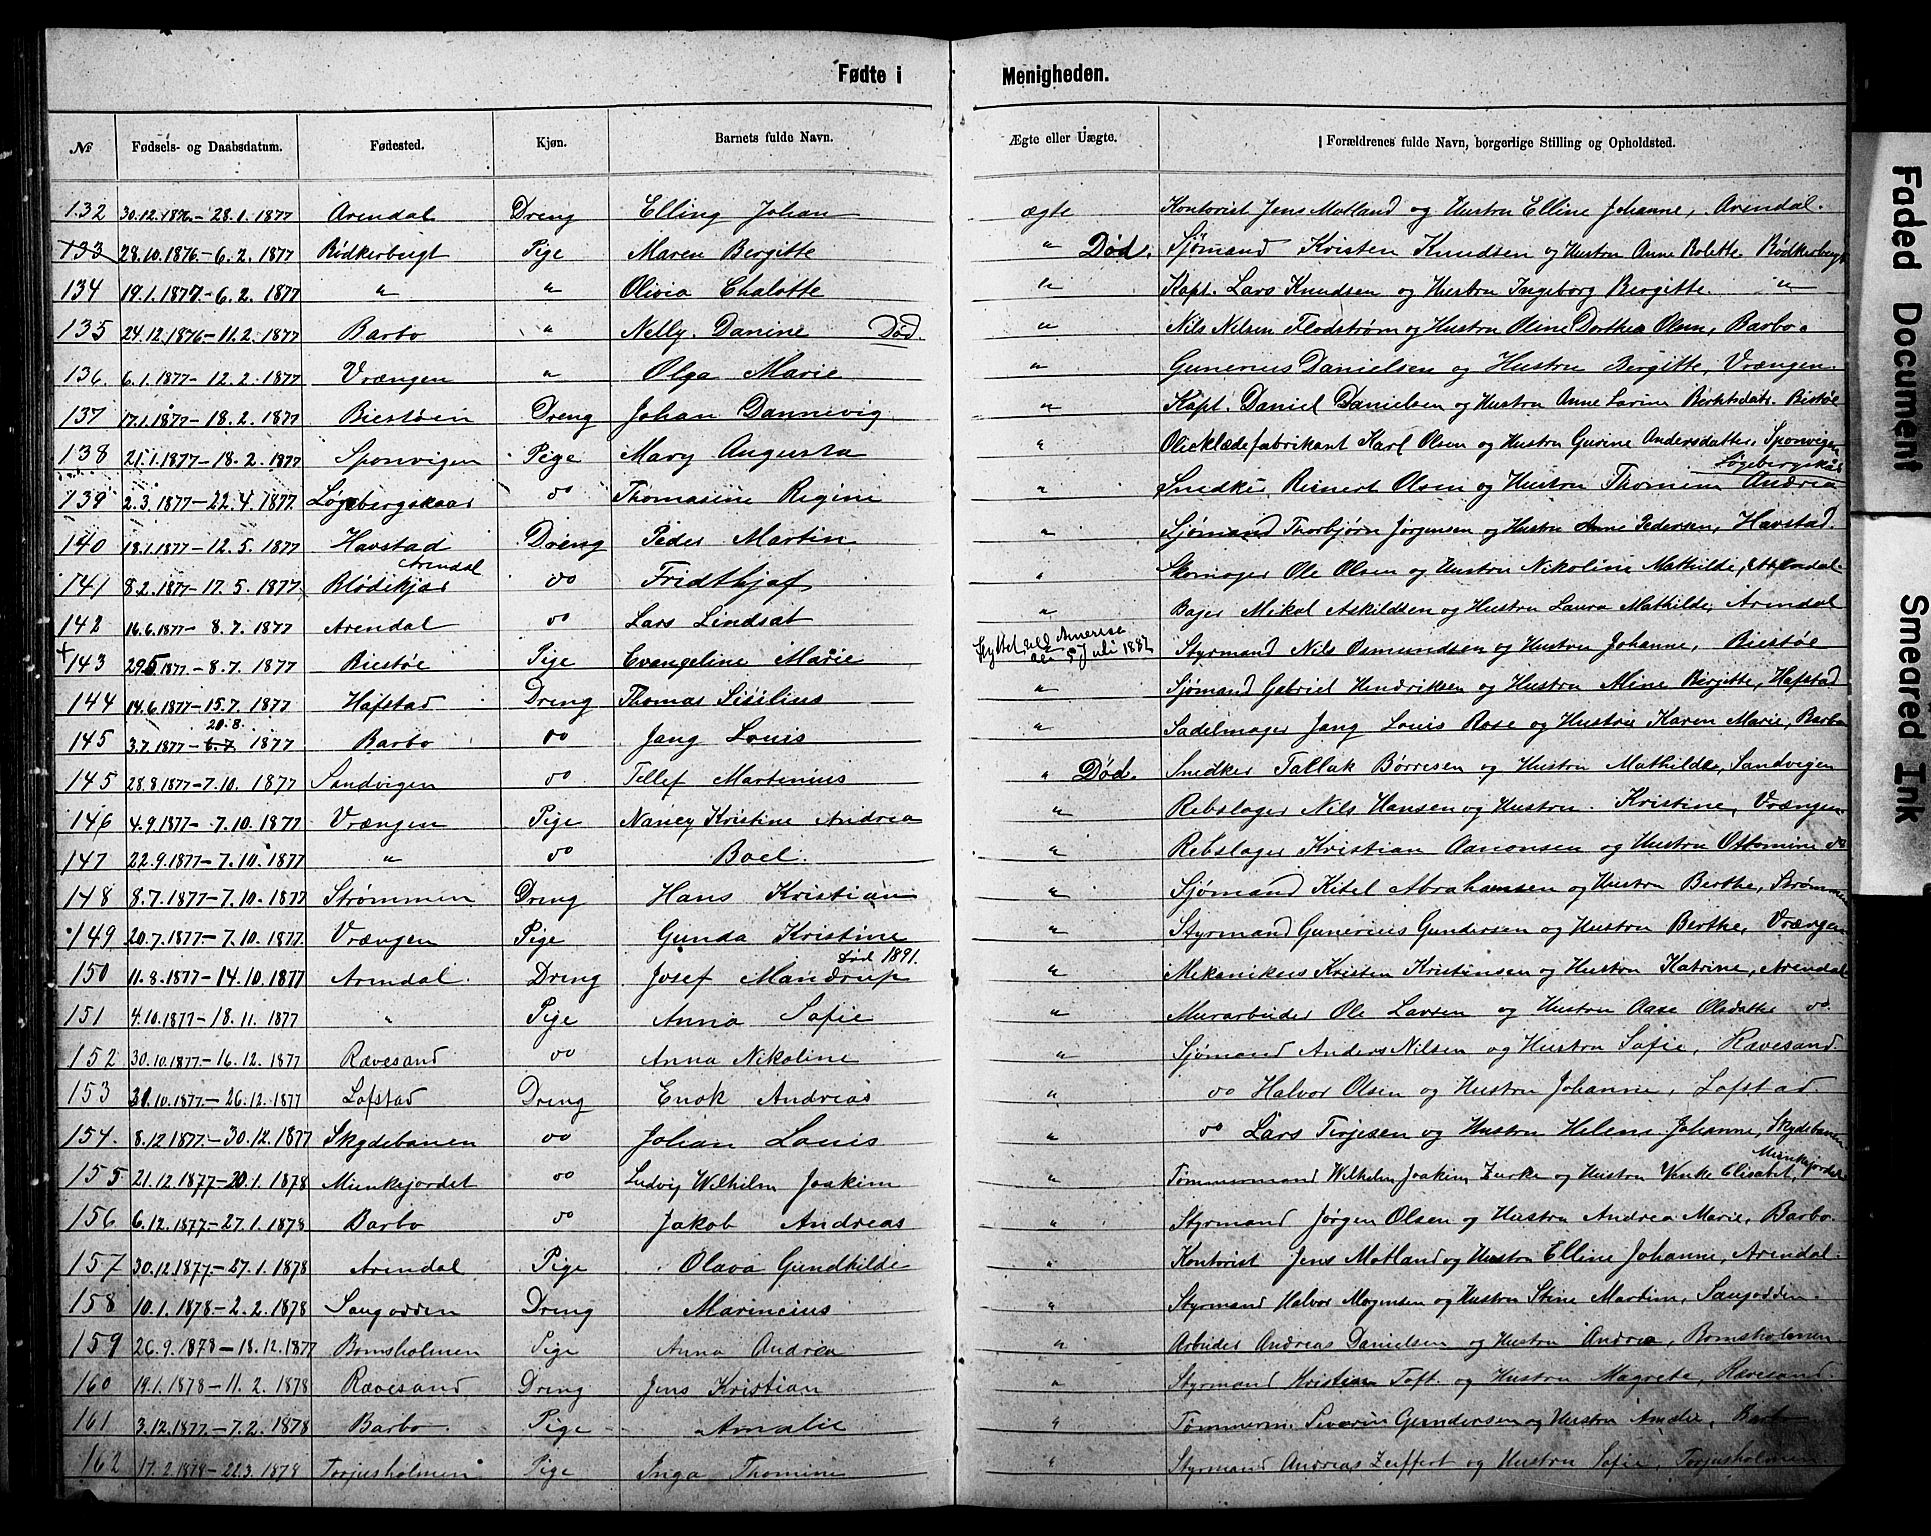 Fødte i Menigheden.
№ Fødsels- og Daabsdatum. Fødested. Kjøn. Barnets fulde Navn. Ægte eller Uægte. Forældrenes fulde Navn, borgerlige Stilling og Opholdsted.
132 30.12.1876 – 28.1.1877 Arendal Dreng Elling Johan ægte Kontorist Jens Motland og Hustru Elline Johanne, Arendal.
133 28.10.1876 – 6.2.1877 Bødkerbergt Pige Maren Bergitte " Død. Sjømand Kristen Knudsen og Hustru Anne Bolette Bødkerbergt
134 19.1.1877 – 6.2.1877 " " Olivia Chalotte " Kapt. Lars Knudsen og Hustru Ingeborg Bergitte. "
135 24.12.1876 – 11.2.1877 Barbo " Nelly Danine Død. " Nils Nilsen Flodstrøm og Hustru Oline Dorthea Olsen, Barbo.
136. 6.1.1877 – 12.2.1877 Vrængen " Olga Marie " Gunerius Danielsen og Hustru Bergitte, Vrængen.
137 17.1.1877 – 18.2.1877 Biestøen Dreng Johan Dannevig " Kapt. Daniel Danielsen og Hustru Anne Larine Berntsdatr. Biestøe
138 21.1.1877 – 18.2.1877 Sponvigen Pige Mary Augusta " Olieklædefabrikant Karl Olsen og Hustru Gurine Andersdatter, Sponvigen
Løgebergskår
139 2.3.1877 – 22.4.1877. Løgebergskaar do Thomasine Regine " Snedker Reinert Olsen og Hustru Thomine Andrea
140 18.1.1877 – 12.5.1877 Havstad Dreng Peder Martin " Sjømand Thorbjørn Jørgensen og Hustru Anne Pedersen, Havstad.
Arendal
141 8.2.1877 – 17.5.1877 Blødekjær do Fridthjof " Skomager Ole Olsen og Hustru Nikoline Mathilde, Arendal.
142 16.6.1877 – 8.7.1877 Arendal do Lars Lindsat " Bager Mikal Askildsen og Hustru Laura Mathilde, Arendal
+ 143 29.5.1877 – 8.7.1877 Biestøe Pige Evangeline Marie Flyttet til Amerika 5 Juli 1882 Styrmand Nils Osmundsen og Hustru Johanne, Biestøe
144 14.6.1877 – 15.7.1877 Hafstad Dreng Thomas Sisilius " Sjømand Gabriel Hendriksen og Hustru Mine Birgitte, Hafstad
20.8.
145 3.7.1877 – 6.7 1877 Barbo do Jang Louis " Sadelmager Jang Louis Rose og Hustru Karen Marie, Barbo
145 28.8.1877 – 7.10.1877 Sandvigen do Tellef Martinius " Død. Snedker Tallak Børresen og Hustru Mathilde, Sandvigen
146 4.9.1877 – 7.10.1877 Vrængen Pige Nancy Kristine Andrea " Rebslager Nils Hansen og Hustru Kristine, Vrængen
147 22.9.1877 – 7.10.1877 " do Boel. " Rebslager Kristian Aanonsen og Hustru Ottomine do
148 8.7.1877 – 7.10.1877 Strømmen Dreng Hans Kristian " Sjømand Kitel Abrahamsen og Hustru Berthe, Strømmen
149 20.7.1877 – 7.10.1877. Vrængen Pige Gunda Kristine " Styrmand Gunerius Gundersen og Hustru Berthe, Vrængen
død 1891.
150 11.8.1877 – 14.10.1877 Arendal. Dreng Josef Mandrup " Mekanikus Kristen Kristensen og Hustru Katrine, Arendal
151 4.10.1877 – 18.11.1877 " Pige Anna Sofie " Murarbeider Ole Larsen og Hustru Aase Olsdatter do.
152 30.10.1877 – 16.12.1877 Rævesand do Anna Nikoline " Sjømand Anders Nilsen og Hustru Sofie, Rævesand.
153 31.10.1877 – 26.12.1877 Lofstad Dreng Enok Andreas " do Halvor Olsen og Hustru Johanne, Lofstad
154. 8.12.1877 – 30.12.1877 Skydebanen do Johan Louis " do Lars Terjesen og Hustru Helene Johanne, Skydebanen
155 21.12.1877 – 20.1.1878 Munkejordet do Ludvig Wilhelm Joakim " Tømmermand Wilhelm Joakim Zurke og Hustru Wenke Elisabet, Munkejordet
156 6.12.1877 – 27.1.1878 Barbo do Jakob Andreas " Styrmand Jørgen Olsen og Hustru Andrea Marie, Barbo.
157 30.12.1877 – 27.1.1878 Arendal Pige Olava Gundhilde " Kontorist Jens Motland og Hustru Elline Johanne, Arendal.
158 10.1.1878 – 2.2.1878 Saugodden Dreng Marincius " Styrmand Halvor Mogensen og Hustru Stine Martine, Saugodden.
159 26.9.1878 – 18.12.1877 Bomsholmen Pige Anna Andrea " Arbeider Andreas Danielsen og Hustru Andrea, Bomsholmen
160 19.1.1878 – 11.2.1878 Rævesand Dreng Jens Kristian " Styrmand Kristian Toft. og Hustru Magrete, Rævesand.
161 3.12.1877 – 7.2.1878 Barbo Pige Amalie " Tømmerm. Severin Gundersen og Hustru Amalie, Barbo
162 17.2.1878 – 22.3.1878 Torjusholmen Pige Inga Thomine " Styrmand Andreas Zeiffert og Hustru Sofie, Torjusholmen
Faded Document
Smeared Ink